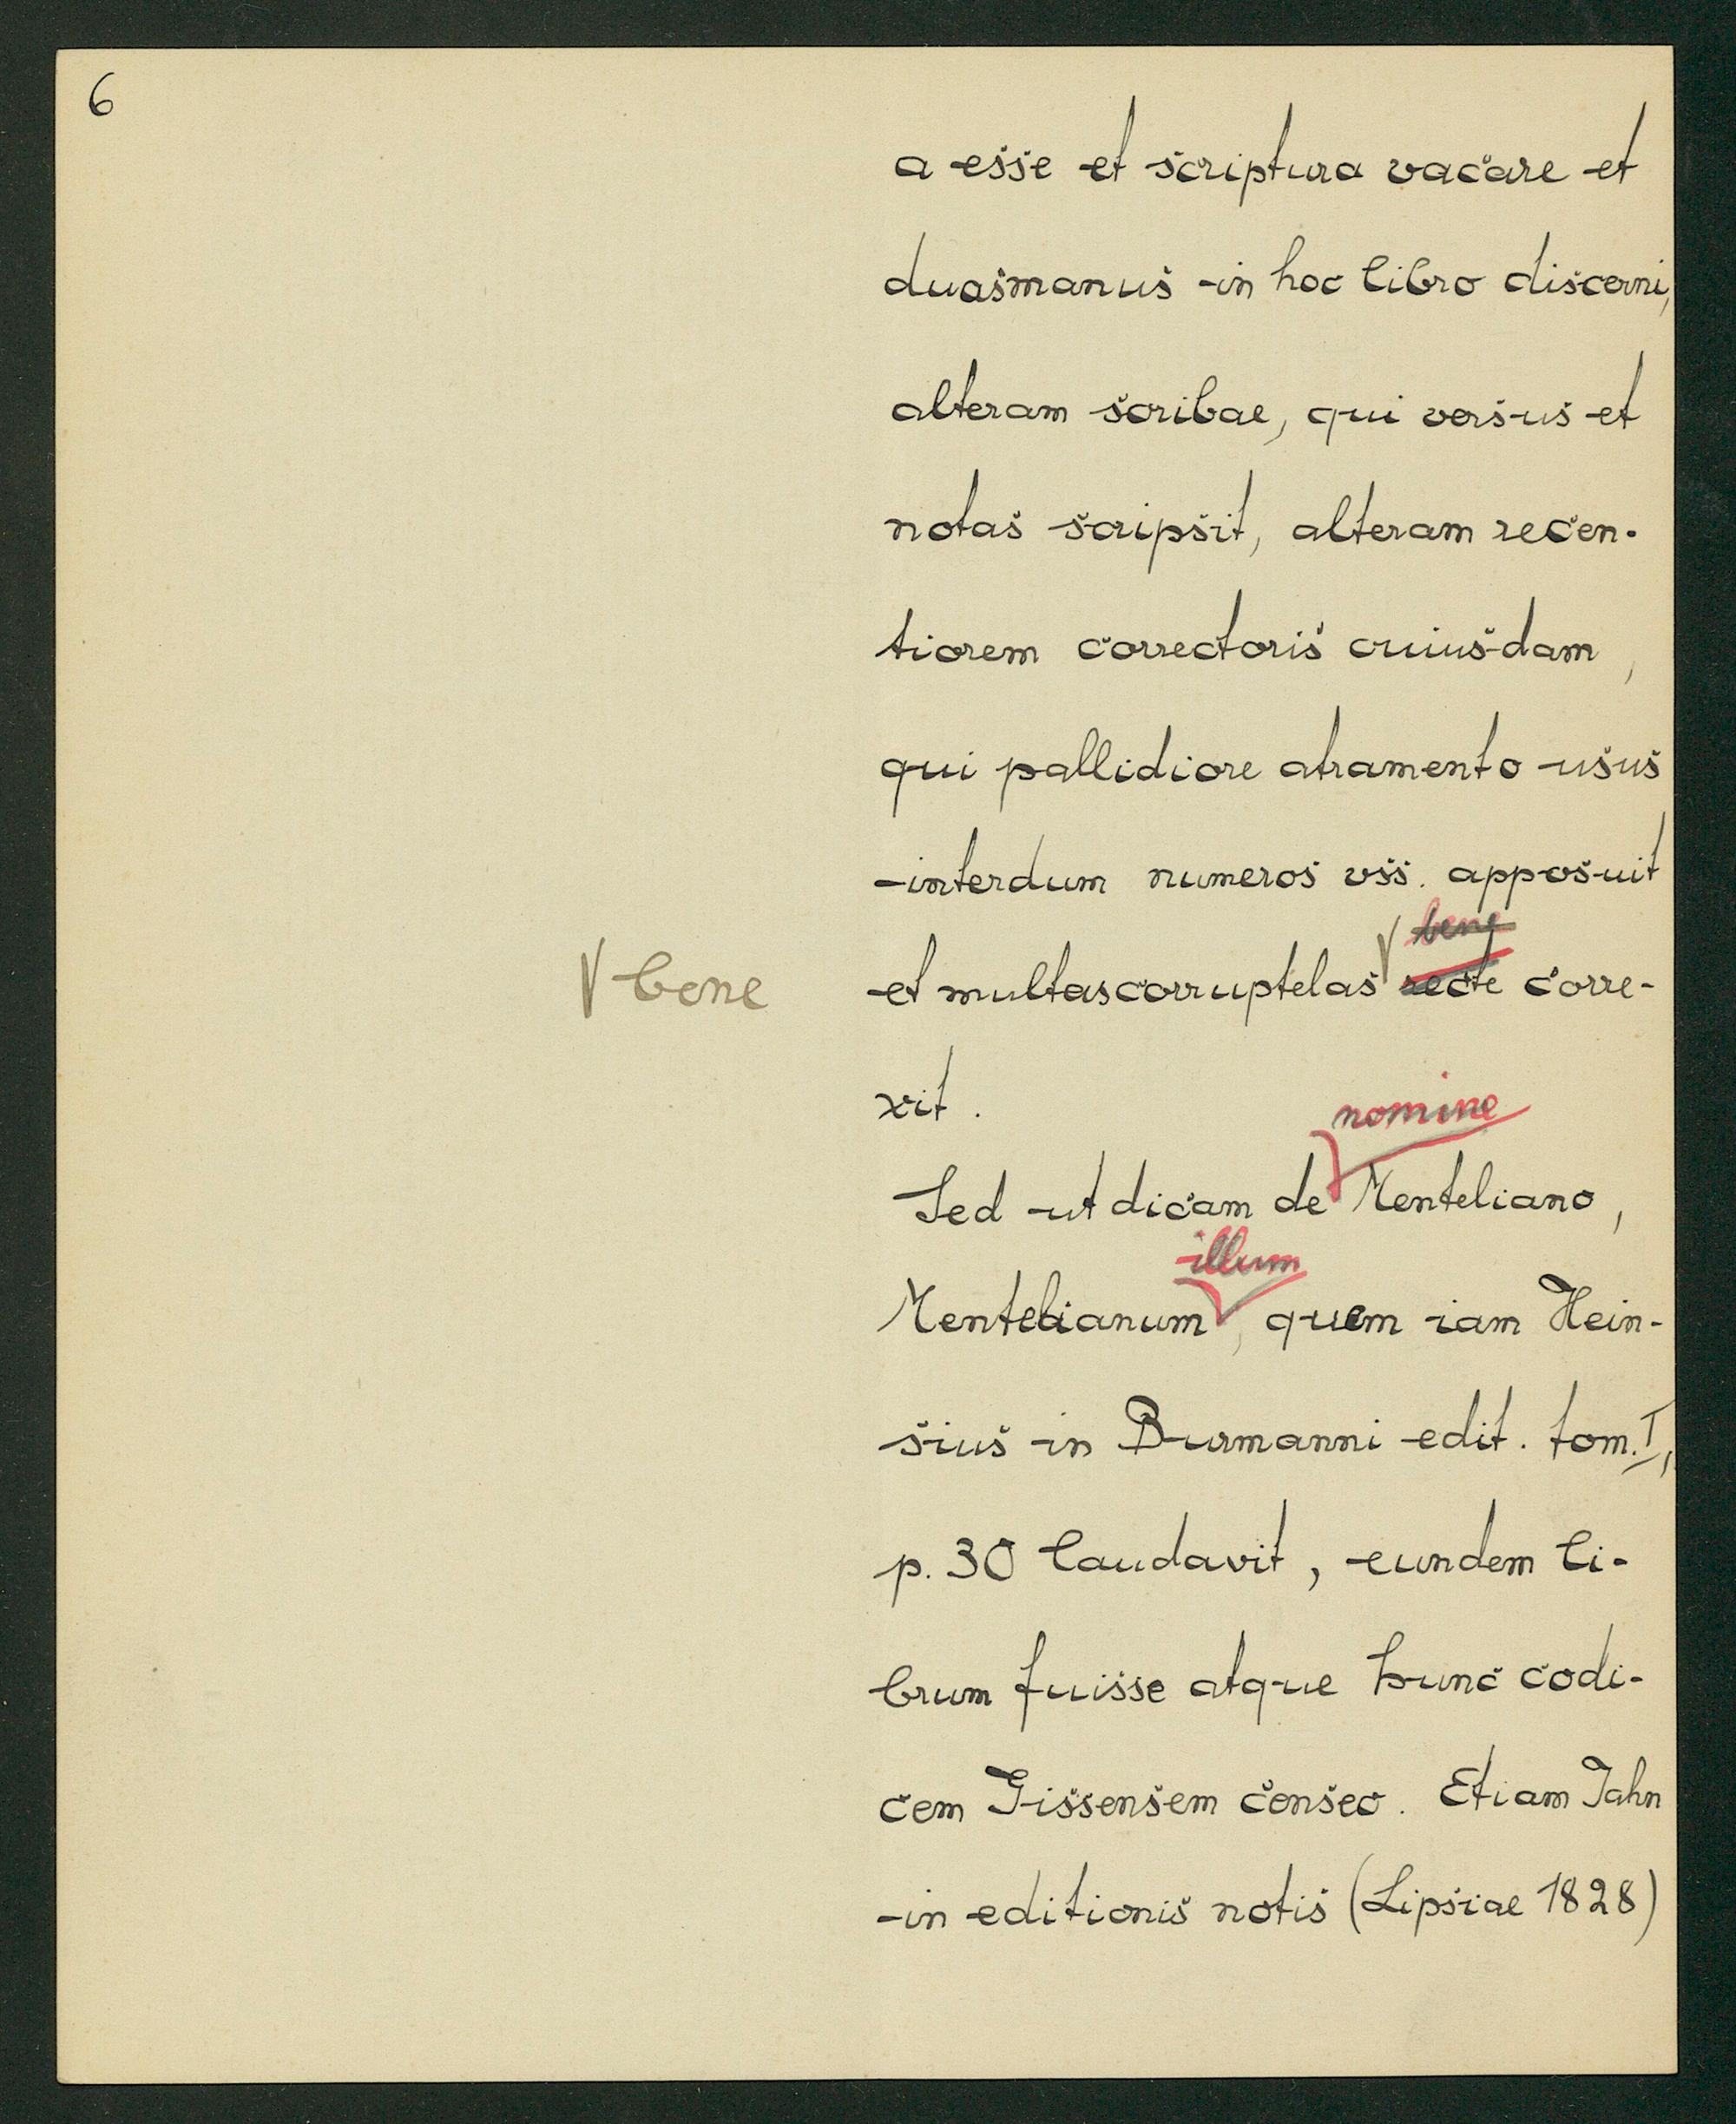 6
a esse et scriptura vacare et
duas manus in hoc libro discerni,
alteram scribae, qui versus et
notas scripsit, alteram recen-
tiorem correctoris cuiusdam,
qui pallidiore atramento usus
interdum numeros vss. apposuit
bene
√ bene et multas corruptelas √ recte corre-
xit.
nomine
Sed ut dicam de Menteliano,
illum
Mentelianum, quem iam Hein-
sius in Burmanni edit. tom. I,
p. 30 laudavit, eundem li-
brum fuisse atque hunc codi-
cem Gissensem censeo. Etiam Jahn
in editionis notis (Lipsiae 1828)